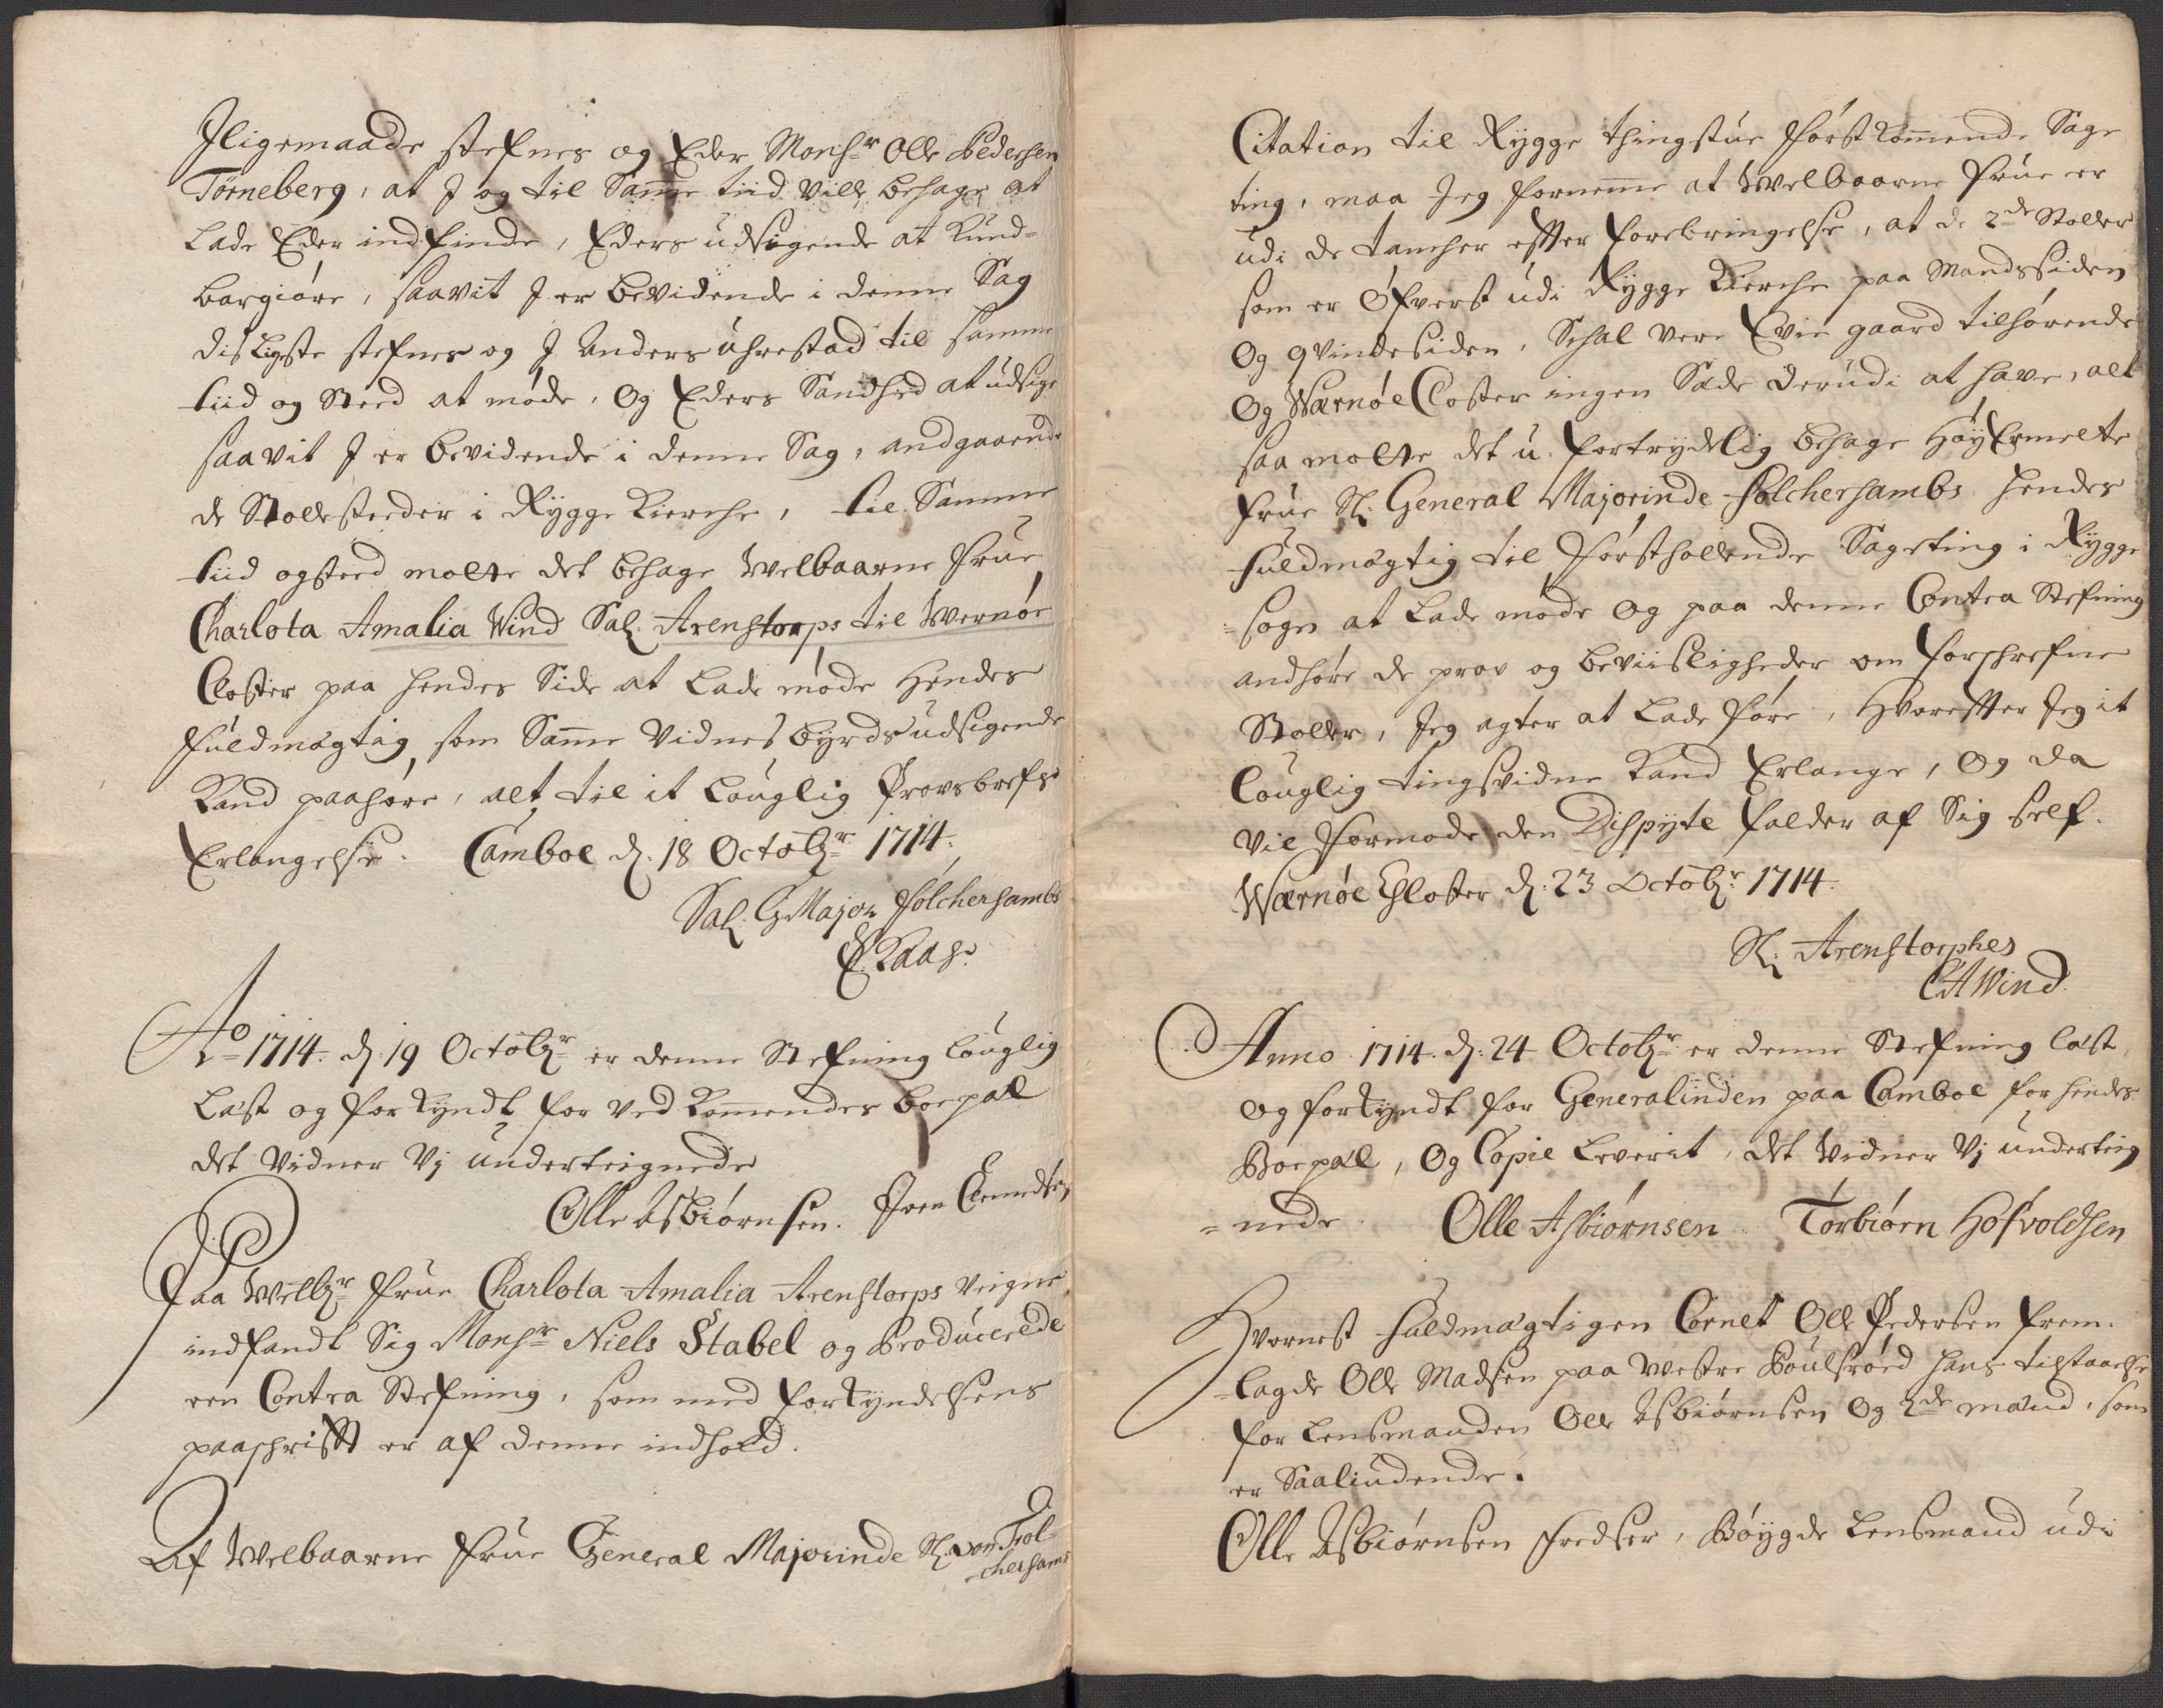 Iligemaade stefnes og Eder Monsr Olle Pedersen
Torneberg, at I og til Samme tiid ville behage at
Lade Eder indfinde, Eders udsigende at Kund-
bargiøre, saavit I er bevidende i denne Sag
disligeste stefnes og I Anders Uhrestad til samme
tiid og Sted at møde, Og Eders Sandhed at udsige
saavit I er bevidende i denne Sag, andgaaende
de Stollesteder i Rygge Kierche, til Samme
tiid og sted motte det behage Welbaarne Frue
Charlota Amalia Wind Sal. Arenstorps til Wernøe
Closter paa hendes Side at Lade møde Hendes
Fuldmægtig, som Samme Vidnesbyrds udsigende
Kand paahøre, alt til it Louglig Provsbrefs
Erlangelse. Camboe d. 18 Octobr 1714.
Sal. GMajor Folchersambs
E. Kaas.
Ao 1714. d. 19 Octobr er denne Stefning Louglig
Læst og forkyndt for vedkommendes boepæl
det Vidner Vj underteignede
Olle Asbiørnsen. Iven Clemedsen
Paa Welbr Frue Charlota Amalia Arenstorps Veigne
indfandt Sig Monsr Niels Stabel og Producerede
een Contra Stefning, som med forkyndelsens
paaschrifft er af denne indhold.
Af Welbaarne Frue General Majorinde Sl. von Fol-
-chersams
Citation til Rygge thingstue førstkommende Sage
ting, maa Jeg fornemme at Welbaarne Frue er
udi de tancher effter forebringelse, at de 2de Stoller
som er Øfverst udi Rygge Kierche paa Mandssiden
Og qvindesiden, Schal vere Evie gaard tilhørende
Og Wærnøe Closter ingen Sæde derudi at have, alt
saa motte det u-fortrydelig behage HøyErmelte
Frue Sl. General Majorinde Folchersambs hendes
Fuldmægtig til Førstholdende Sageting i Rygge
=sogn at Lade møde Og paa denne Contra Stefning
andhøre de prov og beviisligheder om forschrefne
Stoller, Jeg agter at Lade føre, Hvoreffter Jeg it
Louglig tingsvidne Kand Erlange, Og da
vil Formode den Dispyte falder af Sig self.
Wærnøe Closter d. 23 Octobr 1714.
Sl. Arenstorphes
CAWind
Anno 1714. d. 24 Octobr er denne Stefning læst
og forkyndt for Generalinden paa Camboe for hendes
Boepæl, Og Copie Leverit, det Vidner Vj underteig
=nede. Olle Asbiørnsen Torbiørn Hofvoldsen
Hvornest Fuldmægtigen Cornet Olle Pedersen frem-
-lagde Olle Madsen paa Westre Boulsrøed hans tilstaaelse
for Lensmanden Olle Asbiørnsen Og 2de mænd, som
er Saaliudende.
Olle Asbiørnsen Fredser, Bøygde Lensmand udi